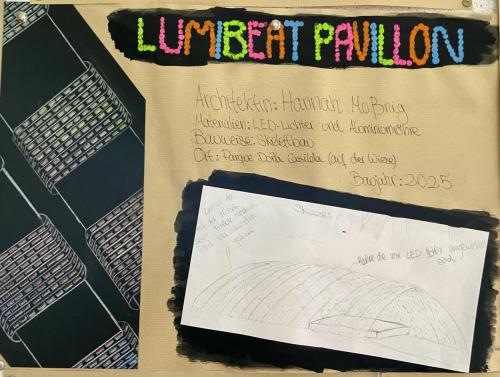 LUMIBEAT PAVILLON
Architektin: Hannah Moßnig
Materialien: LED-Lichter und Aluminiumrohre
Bauweise: Skelettbau
Ort: Parque Doña Casilda (auf der Wiese)
Baujahr: 2025
Skizze:
Rohre die von LED Lichter umgewickelt
sind